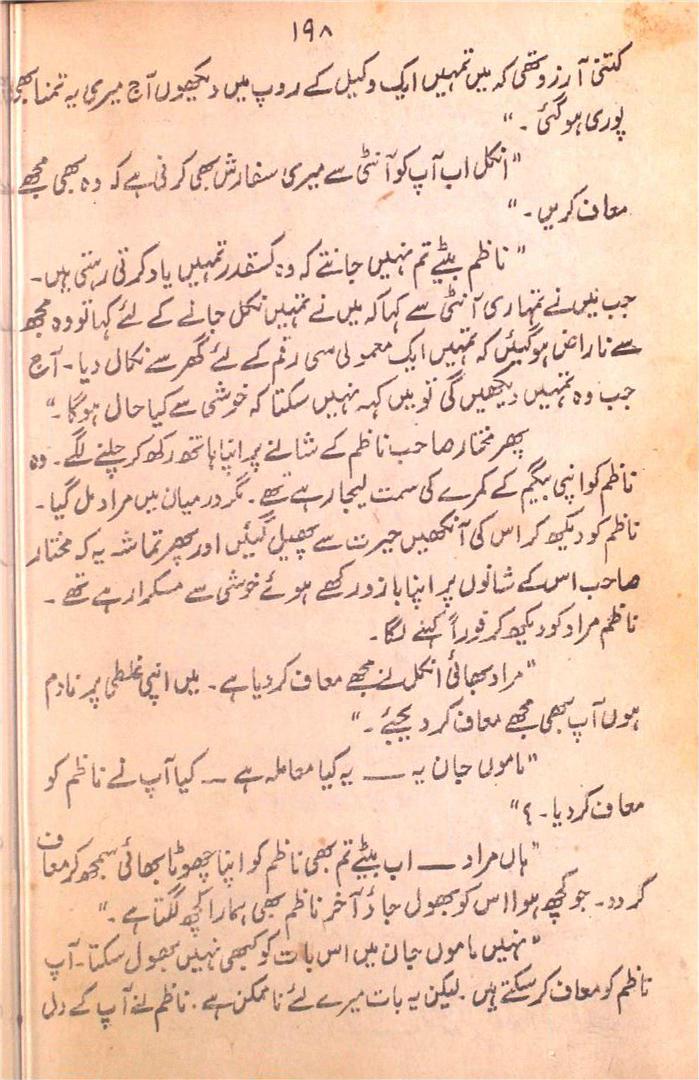 ۱۹۸
کتنی آرزو تھی کہ میں تمہیں ایک وکیل کے روپ میں دیکھوں آج میری یہ تمنا بھی
پوری ہو گئی ۔"
"انکل اب آپ کو آنٹی سے میری سفارش بھی کرنی ہے کہ وہ بھی مجھے
معاف کریں ۔"
"ناظم بیٹے تم نہیں جانتے کہ وہ کسقدر تمہیں یاد کرتی رہتی ہیں۔
جب میں نے تمہاری آنٹی سے کہا کہ میں نے تمہیں نکل جانے کے لئے کہا تو وہ مجھ
سے ناراض ہو گئیں کہ تمہیں ایک معمولی سی رقم کے لئے گھر سے نکال دیا ۔ آج
جب وہ تمہیں دیکھیں گی تو میں کہہ نہیں سکتا کہ خوشی سے کیا حال ہو گا ۔"
پھر مختار صاحب ناظم کے شانے پر اپنا ہاتھ رکھ کر چلنے لگے ۔ وہ
ناظم کو اپنی بیگم کے کمرے کی سمت لیجا رہے تھے۔ مگر درمیان میں مراد مل گیا۔
ناظم کو دیکھ کر اس کی آنکھیں حیرت سے پھیل گئیں اور پھر تماشہ یہ کہ مختار
صاحب اس کے شانوں پر اپنا بازو رکھے ہوئے خوشی سے مسکرا رہے تھے ۔
ناظم مراد کو دیکھ کر فوراً کہنے لگا۔
"مراد بھائی انکل نے مجھے معاف کر دیا ہے ۔ میں اپنی غلطی پر نادم
ہوں آپ بھی مجھے معاف کر دیجئے ۔"
"ماموں جان یہ ــــ یہ کیا معاملہ ہے ــ کیا آپ نے ناظم کو
معاف کر دیا ۔؟"
"ہاں مراد ــــ اب بیٹے تم بھی ناظم کو اپنا چھوٹا بھائی سمجھ کر معاف
کر دو ۔ جو کچھ ہوا اس کو بھول جاؤ آخر ناظم بھی ہمارا کچھ لگتا ہے ۔"
"نہیں ماموں جان میں اس بات کو کبھی نہیں بھول سکتا ۔ آپ
ناظم کو معاف کر سکتے ہیں ۔ لیکن یہ بات میرے لئے ناممکن ہے ۔ ناظم نے آپ کے دل